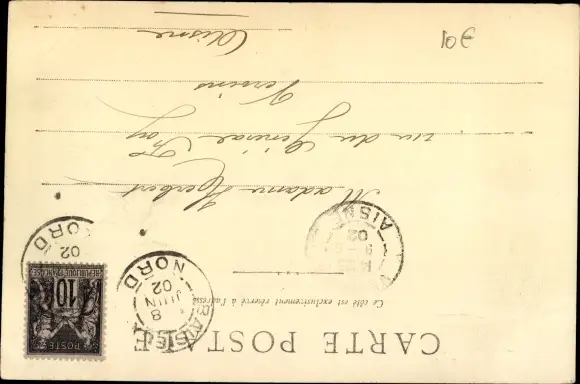 CARTE POSTALE
Ce côté est exclusivement réservé à l'adresse
Madame Herbert
rue du Général Foy
Vervins
Aisne
REPUBLIQUE FRANÇAISE
POSTES
10
NORD
02
8
JUIN
02
NORD
AISNE
9
02
301